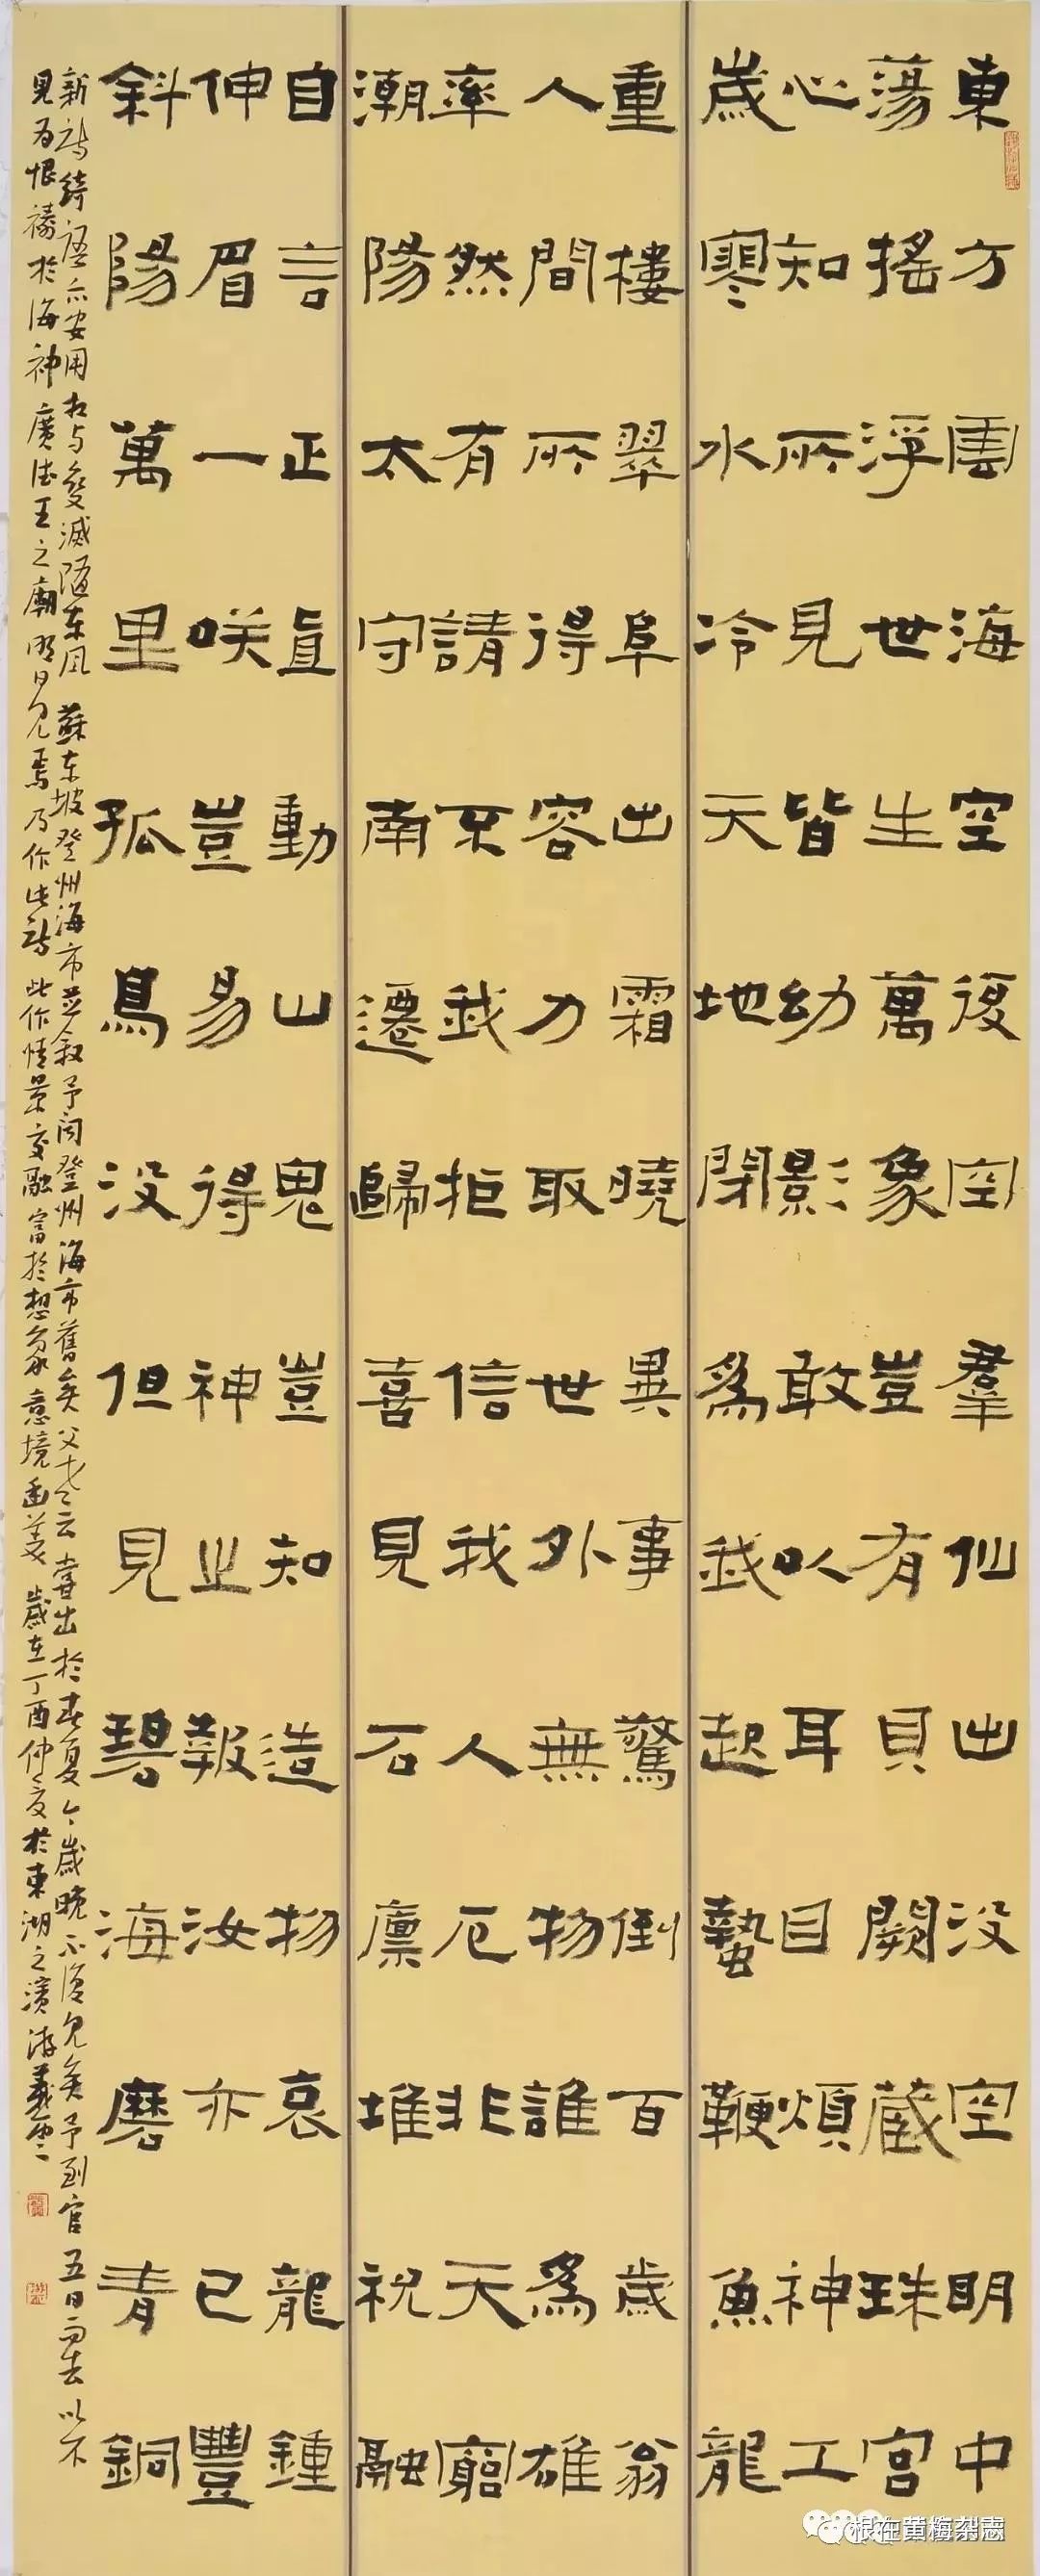 東方雲海空復空羣仙出没空明中
蕩搖浮世生萬象豈有貝闕藏珠宮
心知所見皆幻影敢以耳目煩神工
歲寒水冷天地閉為我起蟄鞭魚龍
重樓翠阜出霜曉異事驚倒百歲翁
人間所得容力取世外無物誰為雄
率然有請不我拒信我人厄非天窮
潮陽太守南遷歸喜見石廩堆祝融
自言正直動山鬼豈知造物哀龍鍾
伸眉一咲豈易得神之報汝亦已豐
斜陽萬里孤鳥没但見碧海磨青銅
新詩綺語亦安用相與變滅隨東風 蘇東坡登州海市並敘予聞登州海市舊矣父老云嘗出於春夏今歲晚不復見矣予到官五日而去以不
見為恨禱於海神廣德王之廟明日見焉乃作此詩 此作情景交融富於想象意境幽美 歲在丁酉仲夏於東湖之濱游義
根在黄梅杂志